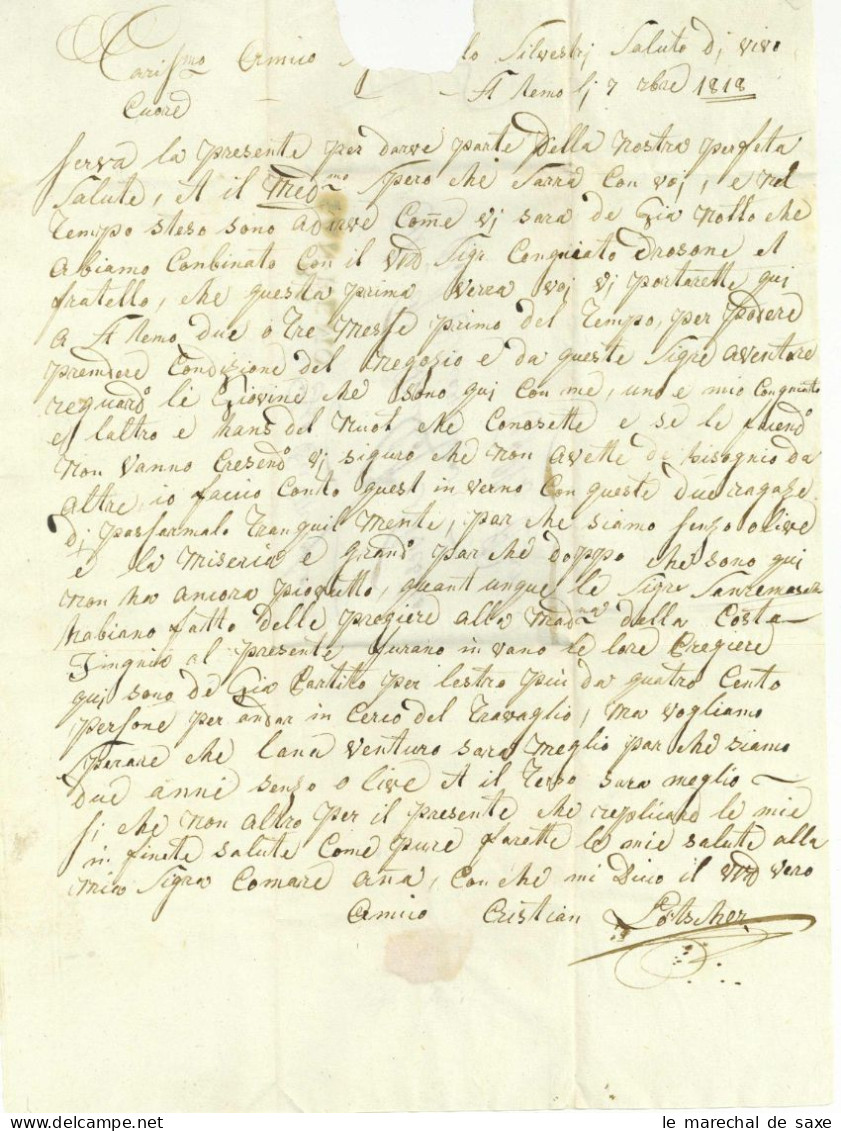 Carissmo Amico lo Silvestrj Salute dj vivo
Cuore - - - St Remo lj 7 xbre 1818
serva la presente per darve parte della nostra perfeta
Salute, et il Medmo spero che sarra con voj, e nel
tempo steso sono adirve Come vj sara de Gia notto che
abiamo Conbinato Con il Vro Sigr Congniato Drosone et
fratello, che questa prima verea voj vj portarette quj
a St Remo due o tre messe primo del tempo, per podere
prendere Condizione del negozio e da queste Sigre aventore
reguardo le Giovine che sono quj con me, uno e mio Congniato
et laltro e hans del Nuot che Conosette e se le fuendo
non vanno Cresendo vj siguro che non avette de bisognio da
altre, io faccio Conto quest in verno Con queste due ragaze
dj passarmalo tranquilmente, par che siamo senzo olive
e la miseria e grando par che doppo che sono quj
non ha ancora piovutto, quant unque le Sigre Sanremasche
habiano fatto delle pregiere alla Madna della Costa
singnio al presente furano in vano le lore Pregiere
quj sono de Gia Partito per lestro piu da quatro Cento
persone per andar in Cerco del travaglio, Ma vogliamo
sperare che lana venturo sara meglio par che siamo
due anni senso olive et il terso sara meglio
sj che non altro per il presente che replicare le mie
in finete salute Come pure farette le mie salute alla
mia Sigra Comare Aña, Con che mi Dico il Vro vero
Amico Cristian Lötscher
le marechal de saxe